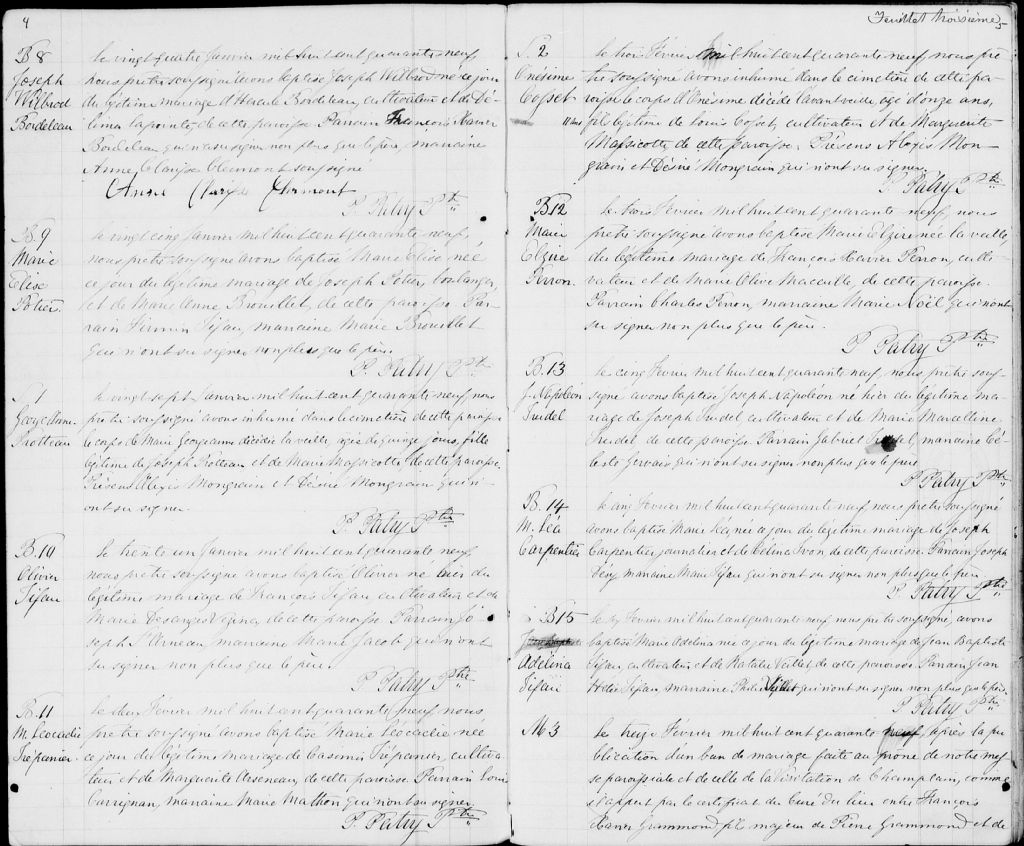 4
B 8
Joseph
Wilbrod
Bordeleau
Le vingt quatre Janvier mil huit cent quarante neuf
nous prêtre soussigné avons baptisé Joseph Wilbrod né ce jour
du légitime mariage d'Hercule Bordeleau, cultivateur et de Dé-
lima Lapointe, de cette paroisse. Parrain François Xavier
Bordeleau qui n'a su signer non plus que le père, marraine
Anne Clarisse Clermont soussigné
Anne Claryse Clermont
P. Patry Ptre
B. 9
Marie
Elise
Potier
Le vingt cinq Janvier mil huit cent quarante neuf,
nous prêtre soussigné avons baptisé Marie Elise née
ce jour du légitime mariage de Joseph Potier, boulanger,
et de Marie Anne Brouillet, de cette paroisse. Par-
rain Firmin Fifau, marraine Marie Brouillet
qui n'ont su signer non plus que le père.
P. Patry Ptre
S. 1
George Anne
Trotteau
Le vingt sept Janvier mil huit cent quarante neuf, nous
prêtre soussigné avons inhumé dans le cimetière de cette paroisse
le corps de Marie Georgeanne décédée la veille agée de quinze jours, fille
légitime de Joseph Trotteau et de Marie Massicotte, de cette paroisse.
Présens Alexis Mongrain et Désiré Mongrain qui n'
ont su signer.
P. Patry Ptre
B. 10
Olivier
Fifau
Le trente un Janvier mil huit cent quarante neuf
nous prêtre soussigné avons baptisé Olivier né hier du
légitime mariage de François Fifau cultivateur et de
Marie Desanges Vezina, de cette paroisse. Parrain Jo-
seph Arneau, marraine Marie Jacob qui n'ont
su signer non plus que le père.
P. Patry Ptre
B. 11
M. Léocadie
Trépanier
Le deux Février mil huit cent quarante neuf, nous
prêtre soussigné avons baptisé Marie Léocadie née
ce jour du légitime mariage de Casimir Trépanier, cultiva-
teur et de Marguerite Arseneau, de cette paroisse. Parrain Louis
Carrignan, marraine Marie Mathon qui n'ont su signer.
P. Patry Ptre
Feuillet troisième
5
S. 2
Onésime
Cosset
11 ans
Le trois Février mil huit cent quarante neuf, nous prê-
tre soussigné avons inhumé dans le cimetière de cette pa-
roisse le corps d'Onésime décédé l'avant veille, agé d'onze ans,
fils légitime de Louis Cosset, cultivateur et de Marguerite
Massicotte, de cette paroisse. Présens Alexis Mon-
grain et Désiré Mongrain qui n'ont su signer.
P. Patry Ptre
B 12
Marie
Elzire
Perron
Le trois Février mil huit cent quarante neuf, nous
prêtre soussigné avons baptisé Marie Elzire née la veille,
du légitime mariage de François Xavier Perron, culti-
vateur et de Marie Olive Marcaille, de cette paroisse.
Parrain Charles Perron, marraine Marie Noël qui n'ont
su signer non plus que le père.
P. Patry Ptre
B. 13
J. Napoléon
Trudel
Le cinq Février mil huit cent quarante neuf, nous prêtre sous-
signé avons baptisé Joseph Napoléon né hier du légitime ma-
riage de Joseph Trudel cultivateur et de Marie Marcelline
Trudel de cette paroisse. Parrain Gabriel Trudel, marraine Cé-
leste Gervais qui n'ont su signer non plus que le père
P. Patry Ptre
B. 14
M. Léa
Carpentier
Le cinq Février mil huit cent quarante neuf nous prêtre soussigné
avons baptisé Marie Léa née ce jour du légitime mariage de Joseph
Carpentier journalier et de Célina Ivon de cette paroisse. Parrain Joseph
Déry marraine Marie Fifau qui n'ont su signer non plus que le père
P. Patry Ptre
B 15
Adelina
Fifau
Le Février mil huit cent quarante neuf nous prêtre soussigné, avons
baptisé Marie Adelina née ce jour du légitime mariage de Jean Baptiste
Fifau, cultivateur, et de Natalie Veillet de cette paroisse. Parrain Jean
Fifau, marraine Veillet qui n'ont su signer non plus que le père.
P. Patry Ptre
M 3
Le treize Février mil huit cent quarante neuf, après la pu-
blication d'un ban de mariage faite au prône de notre mes-
se paroissiale et de celle de la Visitation de Champlain, comme
il appert par le certificat du Curé du lieu entre François
Xavier Grammond fils majeur de Pierre Grammond et de